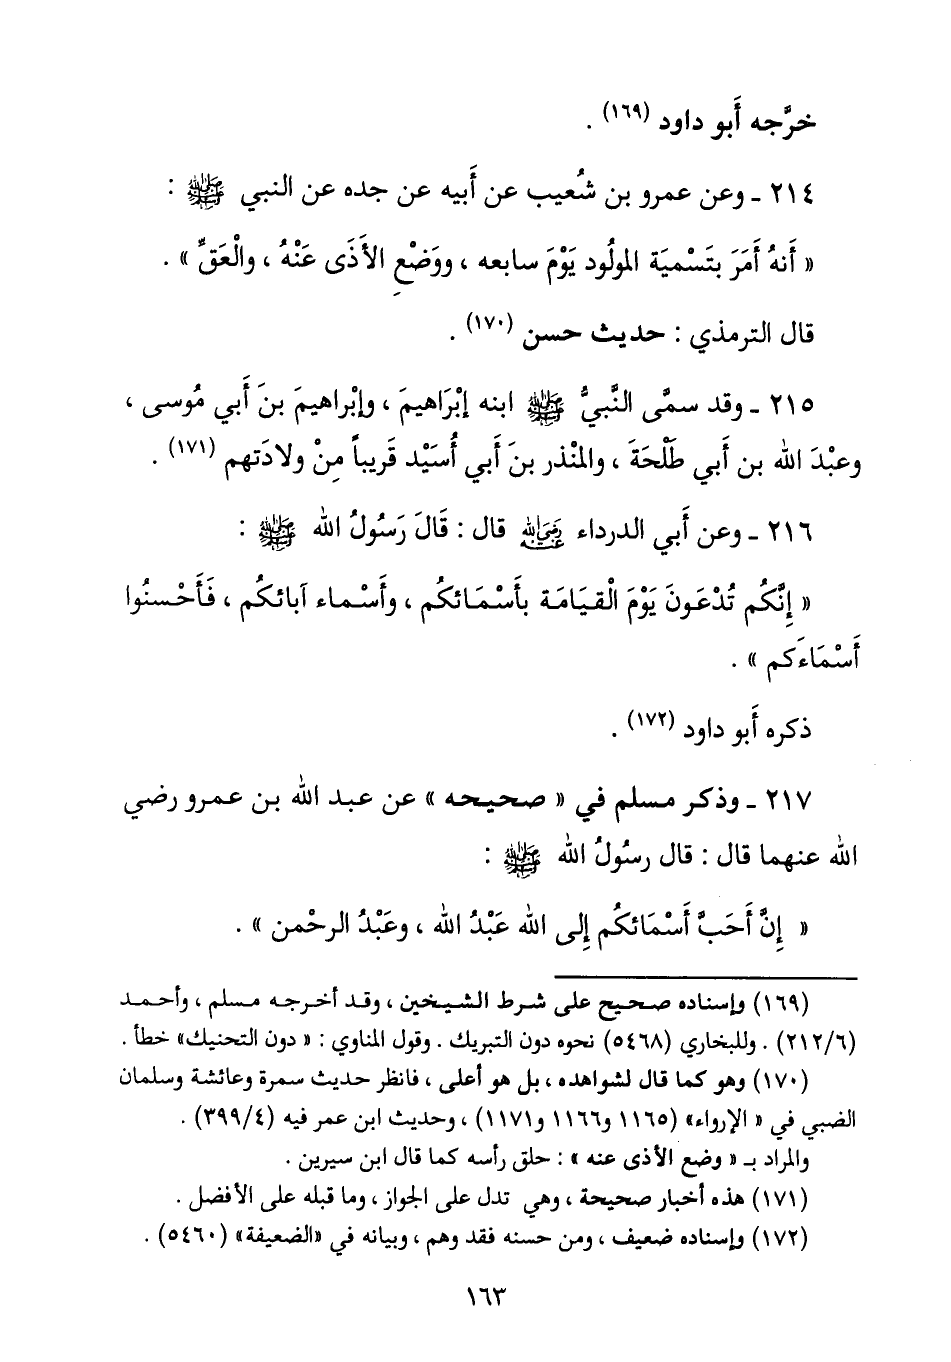 خرَّجه أَبو داود (١٦٩) .
٢١٤ ـ وعن عمرو بن شُعيب عن أَبيه عن جده عن النبي ﷺ :
« أَنهُ أَمَرَ بِتَسْميَة المولُود يَوْمَ سابعه ، ووَضْعِ الأَذَى عَنْهُ ، والْعَقِّ » .
قال الترمذي : حديث حسن (١٧٠) .
٢١٥ ـ وقد سمَّى النَّبيُّ ﷺ ابنه إبْرَاهيمَ ، وإبْراهيمَ بنَ أَبي مُوسى ،
وعبْدَ الله بن أَبي طَلْحَةَ ، والمنْذر بنَ أَبي أُسَيْد قَريباً مِنْ ولادَتهم (١٧١) .
٢١٦ ـ وعن أَبي الدرداء رضي الله عنه قال : قَالَ رَسُولُ الله ﷺ :
« إِنَّكُم تُدْعَونَ يَوْمَ الْقيَامَة بأَسْمَائكُم ، وأَسْماء آبائكُم ، فَأَحْسنُوا
أَسْمَاءَكم » .
ذكره أَبو داود (١٧٢) .
٢١٧ ـ وذكر مسلم في « صحيحه » عن عبد الله بن عمرو رضي
الله عنهما قال : قال رسُولُ الله ﷺ :
« إِنَّ أَحَبَّ أَسْمَائكُم إِلى الله عَبْدُ الله ، وعَبْدُ الرحْمن » .
(١٦٩) وإسناده صحيح على شرط الشيخين ، وقد أخرجه مسلم ، وأحمد
(٦/٢١٢) . وللبخاري (٥٤٦٨) نحوه دون التبريك . وقول المناوي : « دون التحنيك» خطأ .
(١٧٠) وهو كما قال لشواهده ، بل هو أعلى ، فانظر حديث سمرة وعائشة وسلمان
الضبي في « الإرواء» (١١٦٥ و١١٦٦ و١١٧١) ، وحديث ابن عمر فيه (٤/٣٩٩) .
والمراد بـ « وضع الأذى عنه » : حلق رأسه كما قال ابن سيرين .
(١٧١) هذه أخبار صحيحة ، وهي تدل على الجواز ، وما قبله على الأفضل .
(١٧٢) وإسناده ضعيف ، ومن حسنه فقد وهم ، وبيانه في «الضعيفة» (٥٤٦٠) .
١٦٣